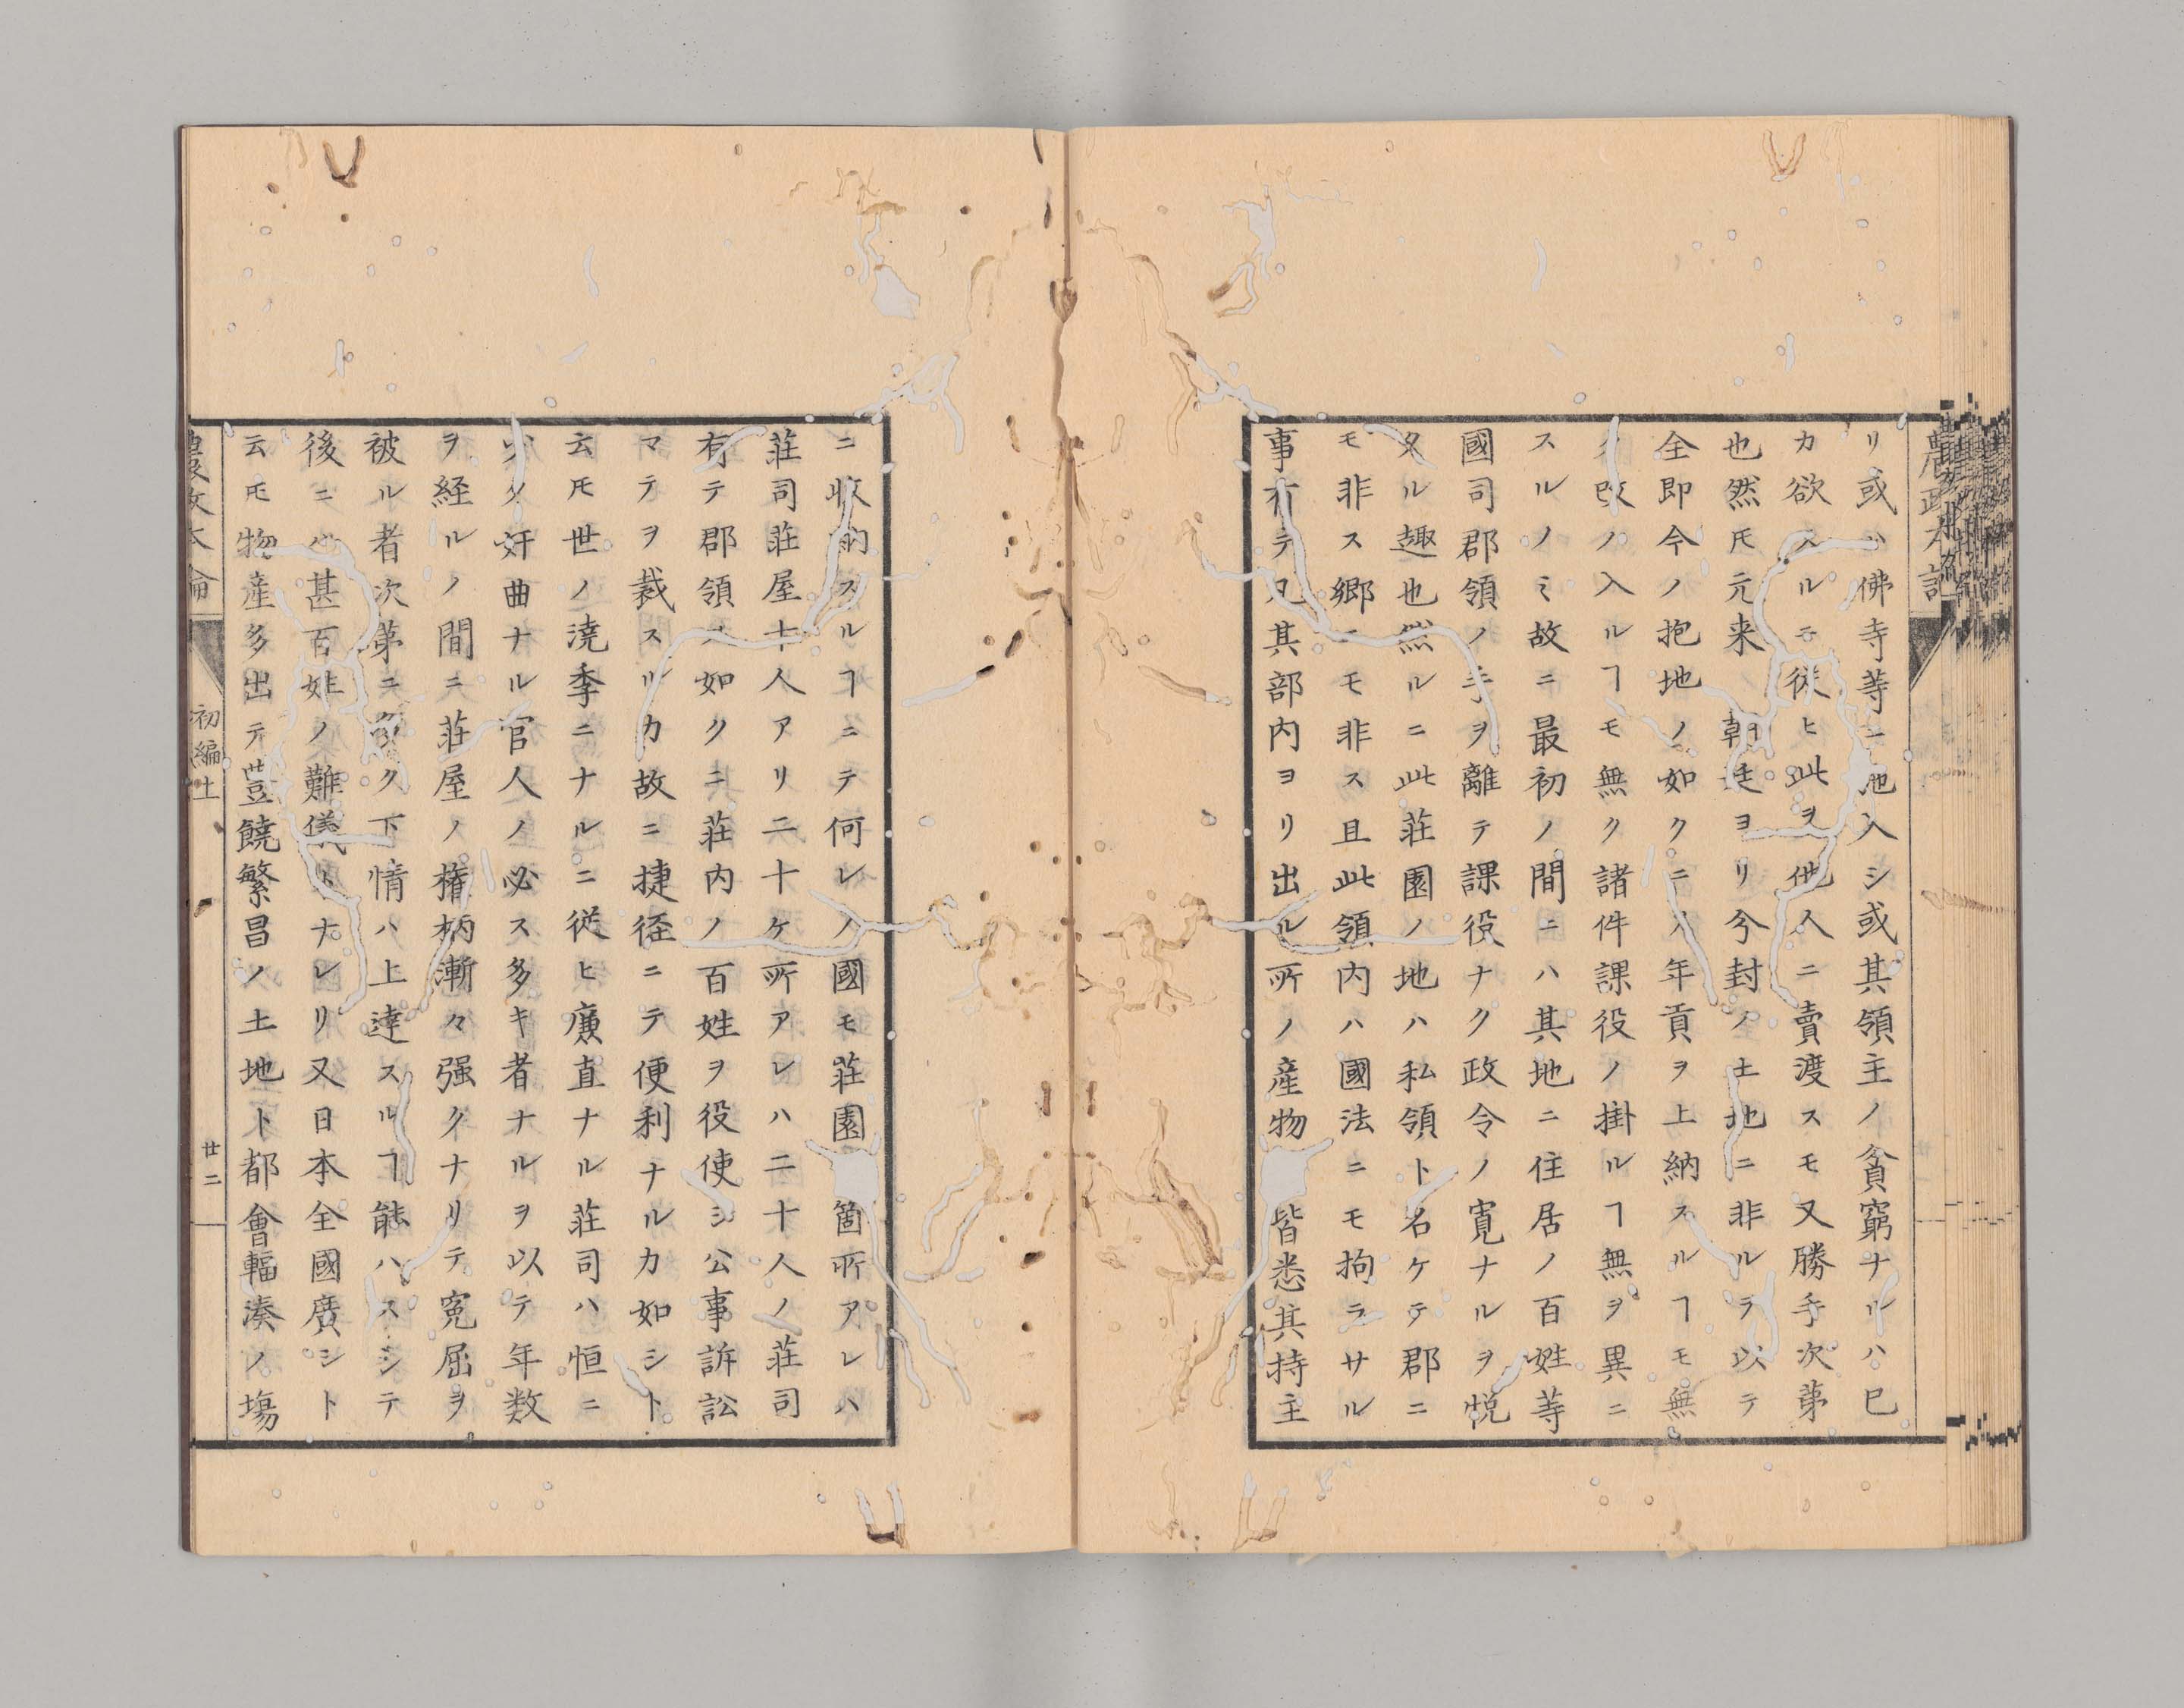 リ或ハ佛寺等ニ施入シ或其領主ノ貧窮ナルハ巳
カ欲スルニ従ヒ此ヲ他人ニ賣渡スモ又勝手次苐
也然𪜈元来ノ朝廷ヨリ今封ノ土地ニ非ルヲ以テ
全即今ノ抱地ノ如クニノ年貢ヲ上納スルヿモ無
ク改ノ入ルヿモ無ク諸件課役ノ掛ルヿ無ヲ異ニ
スルノミ故ニ最初ノ間ニハ其地ニ住居ノ百姓等
國司郡領ノ手ヲ離テ課役ナク政令ノ寛ナルヲ悦
タル趣也然ルニ此莊園ノ地ハ私領ト名ケテ郡ニ
モ非ス郷ニモ非ス且此領内ハ國法ニモ拘ラサル
事有テ凡其部内ヨリ出ル所ノ産物皆悉其持主
ニ收納スルヿニテ何レノ國モ莊園 箇所アレハ
莊司莊屋十人アリ二十ケ所アレハ二十人ノ莊司
有テ郡領ノ如クニ莊内ノ百姓ヲ役使シ公事訴訟
マテヲ裁スルカ故ニ捷径ニテ便利ナルカ如シト
云𪜈世ノ澆季ニナルニ従ヒ廉直ナル莊司ハ恒ニ
少ク奸曲ナル官人ノ必ス多キ者ナルヲ以テ年数
ヲ経ルノ間ニ莊屋ノ権柄漸々强クナリテ寃屈ヲ
被ル者次第ニ多ク下情ハ上達スルヿ能ハスシテ
後ニハ甚百姓ノ難儀トナレリ又日本全國廣シト
云𪜈物産多出テ豈饒繁昌ノ土地ト都會輻湊ノ塲
農政本論 初編上 廿二